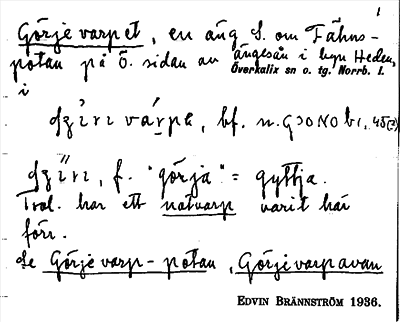 1
Görjevarpet, en äng S. om Fähus-
potan på Ö. sidan av ängesån i byn Heden,
Överkalix sn o. tg. Norrb. l.
i
f. "görja" = gyttja.
Trol. har ett notvarp varit här
förr.
Se Görjevarp-potan, Görjevarpavan
EDVIN BRÄNNSTRÖM 1936.